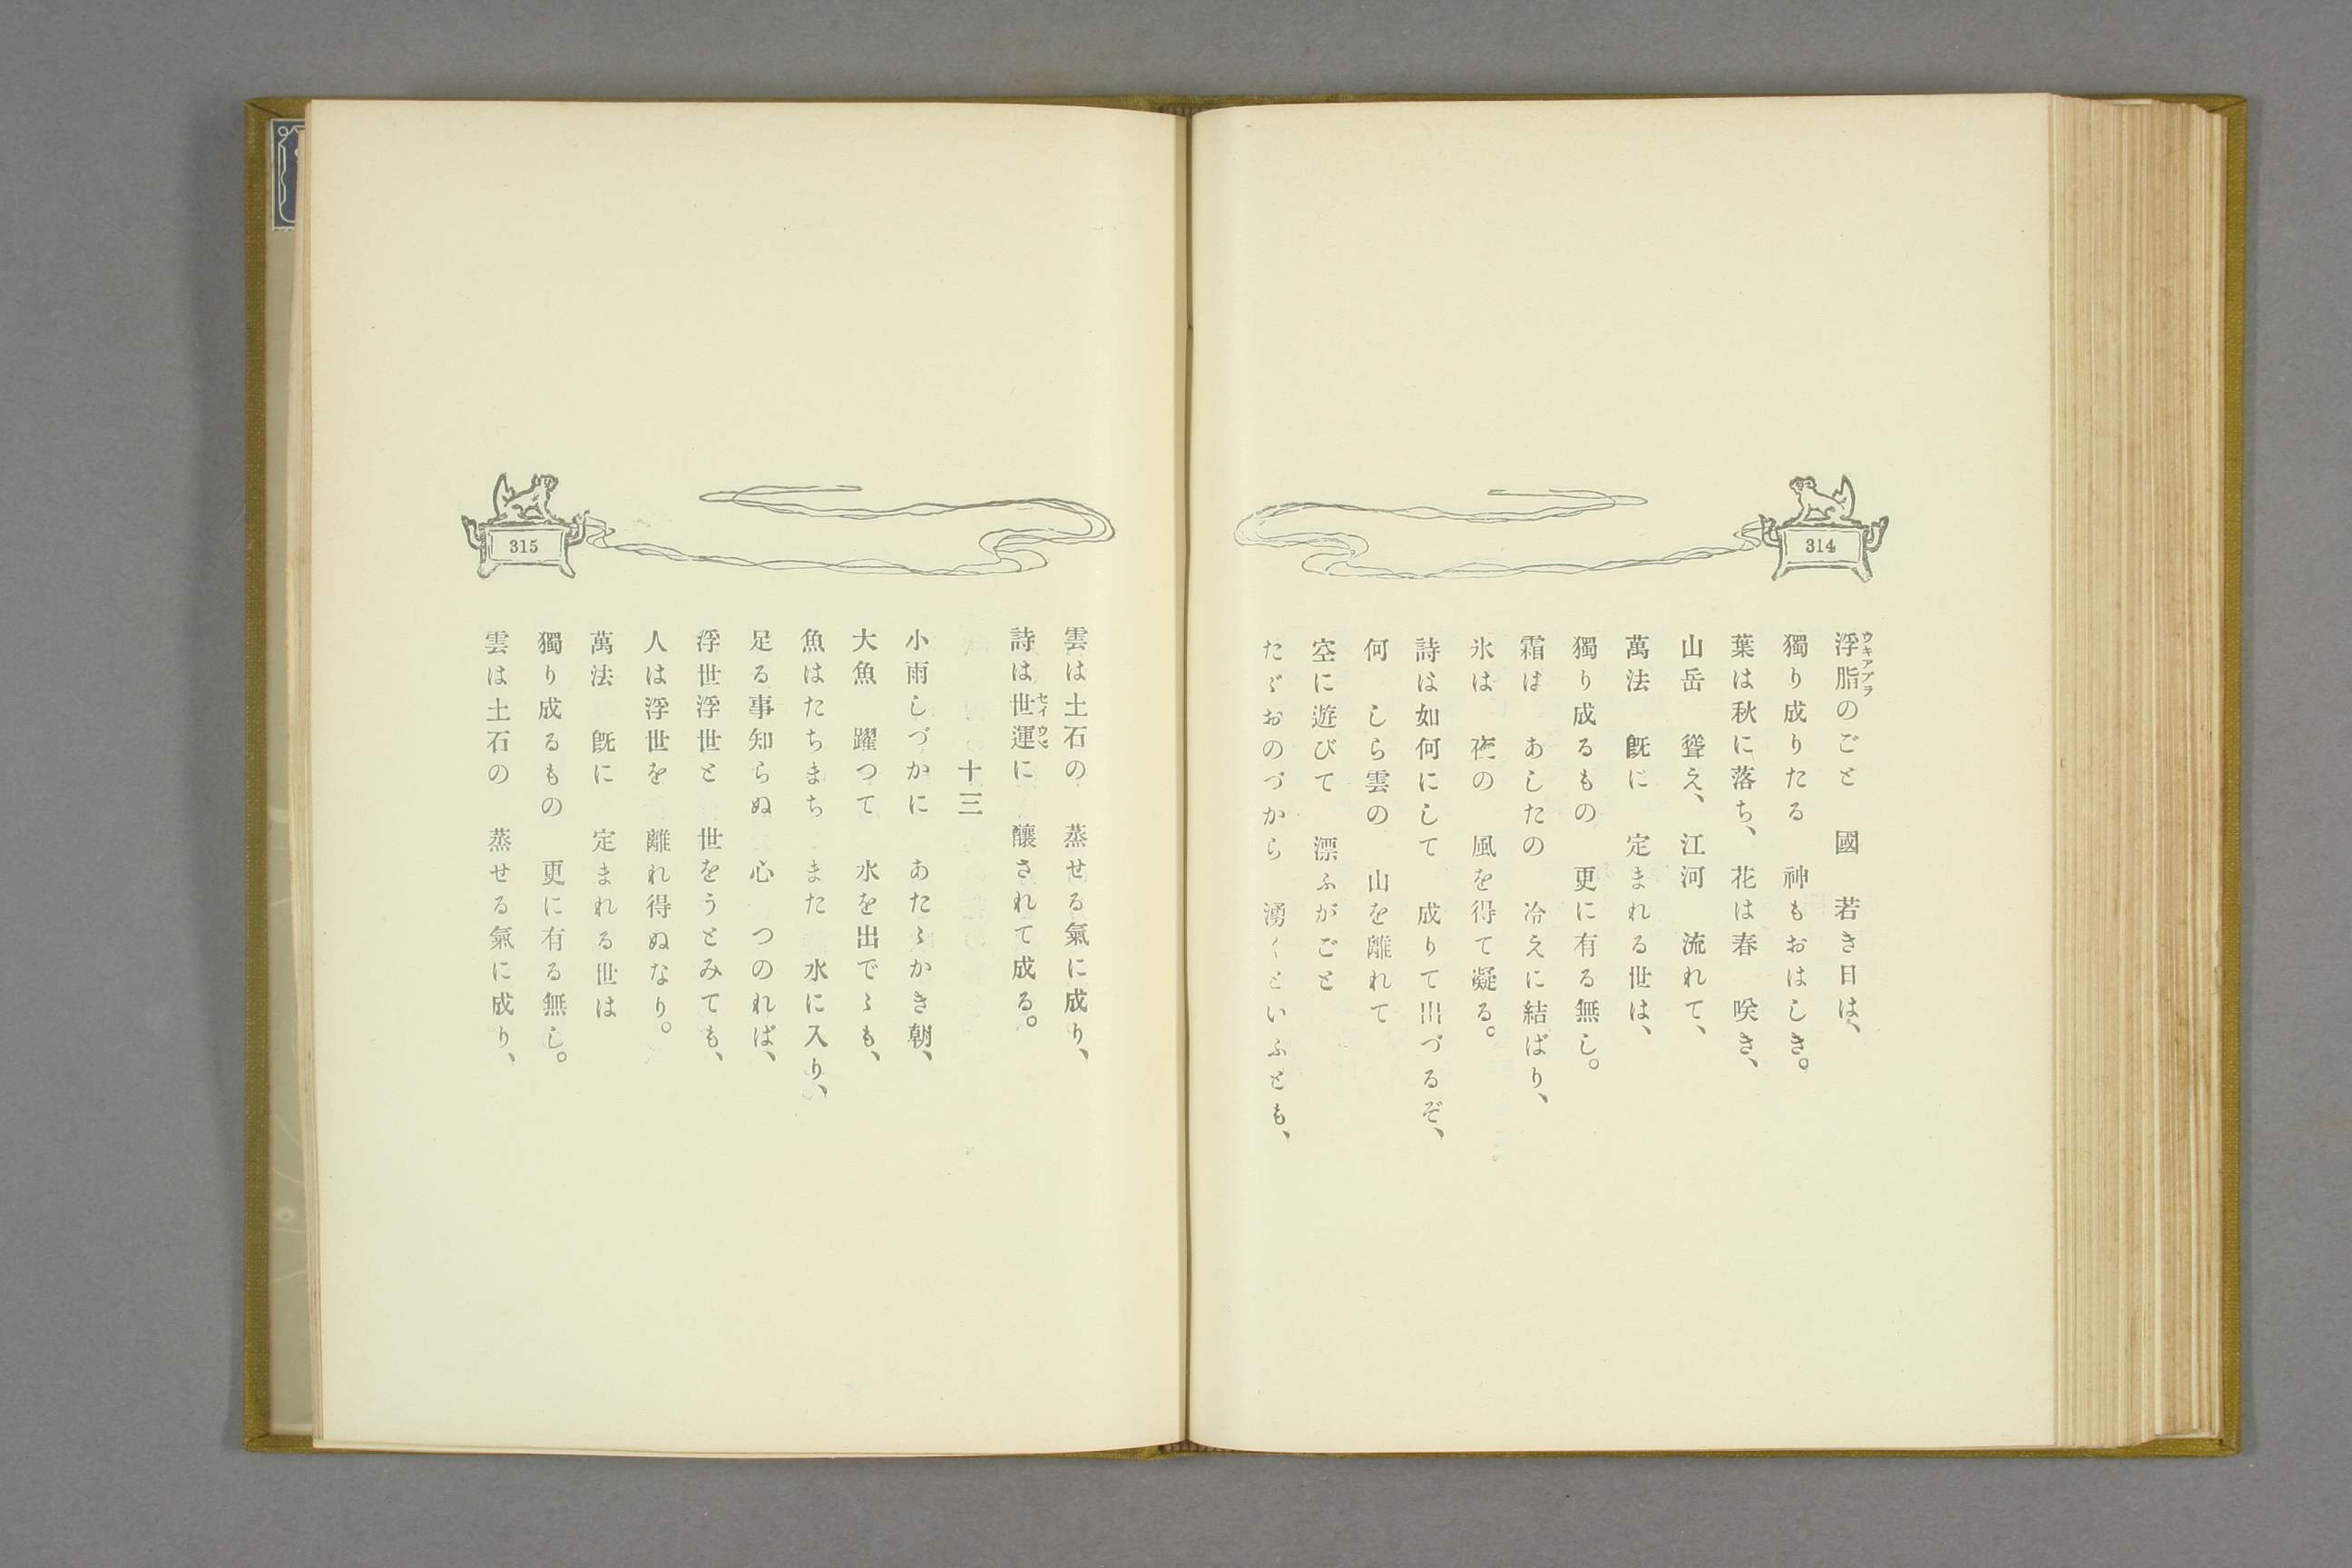 314
浮脂のごと　國　若き日は、
ウキアブラ
獨り成りたる　神もおはしき。
葉は秋に落ち、花は春　咲き、
山岳　聳え、江河　流れて、
萬法　既に　定まれる世は、
獨り成るもの　更に有る無し。
霜は　あしたの　冷えに結ばり、
氷は　夜の　風を得て凝る。
詩は如何にして　成りて出づるぞ、
何　しら雲の　山を離れて
空に遊びて　漂ふがごと
たゞおのづから　湧くといふとも、
315
雲は土石の　蒸せる氣に成り、
詩は世運に　釀されて成る。
セイウン
十三
小雨しづかに　あたゝかき朝、
大魚　躍つて　水を出でゝも、
魚はたちまち　また　水に入り、
足る事知らぬ　心　つのれば、
浮世浮世と　世をうとみても、
人は浮世を　離れ得ぬなり。
萬法　既に　定まれる世は
獨り成るもの　更に有る無し。
雲は土石の　蒸せる氣に成り、